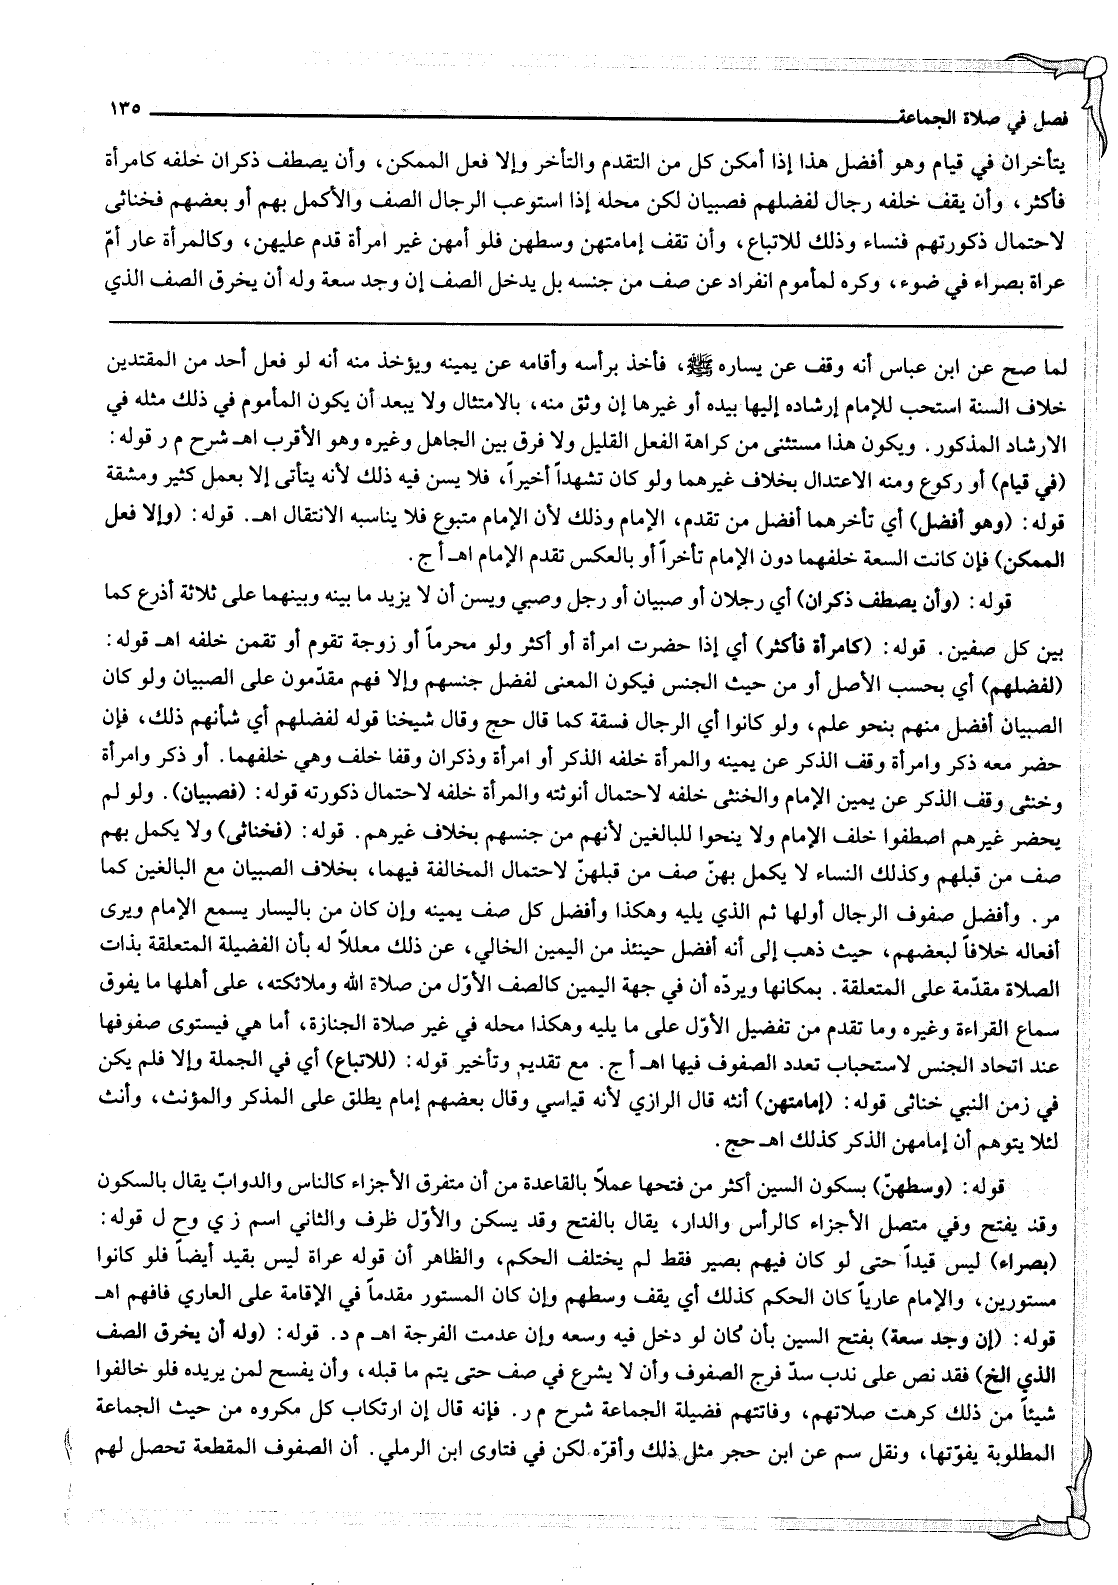 فصل في صلاة الجماعة ١٣٥
يتأخران في قيام وهو أفضل هذا إذا أمكن كل من التقدم والتأخر وإلا فعل الممكن، وأن يصطف ذكران خلفه كامرأة
فأكثر، وأن يقف خلفه رجال لفضلهم فصبيان لكن محله إذا استوعب الرجال الصف والأكمل بهم أو بعضهم فخناثى
لاحتمال ذكورتهم فنساء وذلك للاتباع، وأن تقف إمامتهن وسطهن فلو أمهن غير امرأة قدم عليهن، وكالمرأة عار أمّ
عراة بصراء في ضوء، وكره لمأموم انفراد عن صف من جنسه بل يدخل الصف إن وجد سعة وله أن يخرق الصف الذي
لما صح عن ابن عباس أنه وقف عن يساره ﷺ، فأخذ برأسه وأقامه عن يمينه ويؤخذ منه أنه لو فعل أحد من المقتدين
خلاف السنة استحب للإمام إرشاده إليها بيده أو غيرها إن وثق منه، بالامتثال ولا يبعد أن يكون المأموم في ذلك مثله في
الارشاد المذكور. ويكون هذا مستثنى من كراهة الفعل القليل ولا فرق بين الجاهل وغيره وهو الأقرب اهـ شرح م ر قوله:
(في قيام) أو ركوع ومنه الاعتدال بخلاف غيرهما ولو كان تشهداً أخيراً، فلا يسن فيه ذلك لأنه يتأتى إلا بعمل كثير ومشقة
قوله: (وهو أفضل) أي تأخرهما أفضل من تقدم، الإمام وذلك لأن الإمام متبوع فلا يناسبه الانتقال اهـ. قوله: (وإلا فعل
الممكن) فإن كانت السعة خلفهما دون الإمام تأخراً أو بالعكس تقدم الإمام اهـ أ ج.
قوله: (وأن يصطف ذكران) أي رجلان أو صبيان أو رجل وصبي ويسن أن لا يزيد ما بينه وبينهما على ثلاثة أذرع كما
بين كل صفين. قوله: (كامرأة فأكثر) أي إذا حضرت امرأة أو أكثر ولو محرماً أو زوجة تقوم أو تقمن خلفه اهـ قوله:
(لفضلهم) أي بحسب الأصل أو من حيث الجنس فيكون المعنى لفضل جنسهم وإلا فهم مقدّمون على الصبيان ولو كان
الصبيان أفضل منهم بنحو علم، ولو كانوا أي الرجال فسقة كما قال حج وقال شيخنا قوله لفضلهم أي شأنهم ذلك، فإن
حضر معه ذكر وامرأة وقف الذكر عن يمينه والمرأة خلفه الذكر أو امرأة وذكران وقفا خلف وهي خلفهما. أو ذكر وامرأة
وخنثى وقف الذكر عن يمين الإمام والخنثى خلفه لاحتمال أنوثته والمرأة خلفه لاحتمال ذكورته قوله: (فصبيان). ولو لم
يحضر غيرهم اصطفوا خلف الإمام ولا ينحوا للبالغين لأنهم من جنسهم بخلاف غيرهم. قوله: (فخناثى) ولا يكمل بهم
صف من قبلهم وكذلك النساء لا يكمل بهنّ صف من قبلهنّ لاحتمال المخالفة فيهما، بخلاف الصبيان مع البالغين كما
مر. وأفضل صفوف الرجال أولها ثم الذي يليه وهكذا وأفضل كل صف يمينه وإن كان من باليسار يسمع الإمام ويرى
أفعاله خلافاً لبعضهم، حيث ذهب إلى أنه أفضل حينئذ من اليمين الخالي، عن ذلك معللاً له بأن الفضيلة المتعلقة بذات
الصلاة مقدّمة على المتعلقة. بمكانها ويردّه أن في جهة اليمين كالصف الأوّل من صلاة الله وملائكته، على أهلها ما يفوق
سماع القراءة وغيره وما تقدم من تفضيل الأوّل على ما يليه وهكذا محله في غير صلاة الجنازة، أما هي فيستوى صفوفها
عند اتحاد الجنس لاستحباب تعدد الصفوف فيها اهـ أ ج. مع تقديم وتأخير قوله: (للاتباع) أي في الجملة وإلا فلم يكن
في زمن النبي خناثى قوله: (إمامتهن) أنثه قال الرازي لأنه قياسي وقال بعضهم إمام يطلق على المذكر والمؤنث، وأنث
لئلا يتوهم أن إمامهن الذكر كذلك اهـ حج.
قوله: (وسطهنّ) بسكون السين أكثر من فتحها عملاً بالقاعدة من أن متفرق الأجزاء كالناس والدوابّ يقال بالسكون
وقد يفتح وفي متصل الأجزاء كالرأس والدار، يقال بالفتح وقد يسكن والأوّل ظرف والثاني اسم ز ي وح ل قوله:
(بصراء) ليس قيداً حتى لو كان فيهم بصير فقط لم يختلف الحكم، والظاهر أن قوله عراة ليس بقيد أيضاً فلو كانوا
مستورين، والإمام عارياً كان الحكم كذلك أي يقف وسطهم وإن كان المستور مقدماً في الإقامة على العاري فافهم اهـ
قوله: (إن وجد سعة) بفتح السين بأن كان لو دخل فيه وسعه وإن عدمت الفرجة اهـ م د. قوله: (وله أن يخرق الصف
الذي الخ) فقد نص على ندب سدّ فرج الصفوف وأن لا يشرع في صف حتى يتم ما قبله، وأن يفسح لمن يريده فلو خالفوا
شيئاً من ذلك كرهت صلاتهم، وفاتتهم فضيلة الجماعة شرح م ر. فإنه قال إن ارتكاب كل مكروه من حيث الجماعة
المطلوبة يفوّتها، ونقل سم عن ابن حجر مثل ذلك وأقرّه لكن في فتاوى ابن الرملي. أن الصفوف المقطعة تحصل لهم